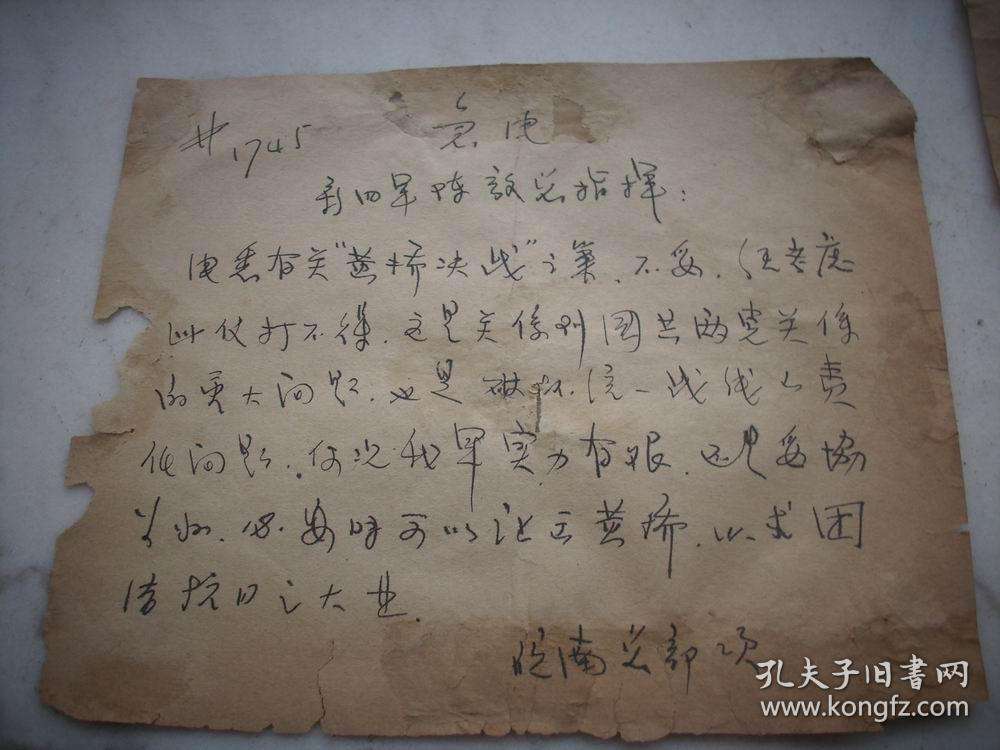 #1745 急电
新四军陈毅总指挥:
电悉有关"黄桥决战"之策,不妥,任考虑
此仗打不得,这是关系到国共两党关系
的重大问题,也是破坏统一战线之责
任问题,何况我军实力有限,还是妥协
为好,必要时可以让出黄桥,以求团
结抗日之大业.
皖南总部 项
孔夫子旧书网
www.kongfz.com